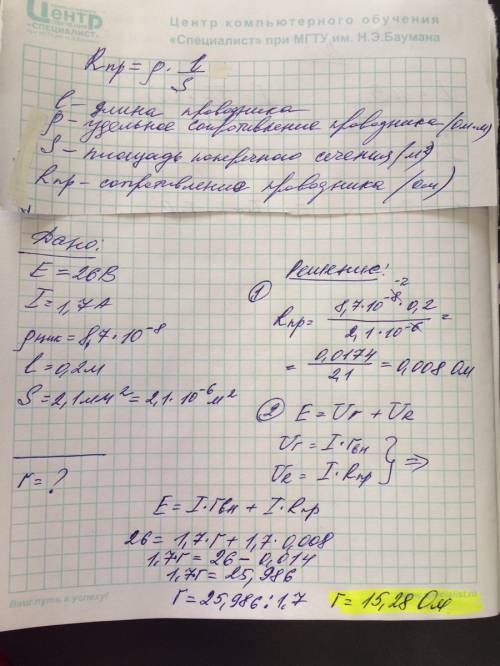 Центр
"СПЕЦИАЛИСТ"
Центр компьютерного обучения
«Специалист» при МГТУ им. Н.Э.Баумана
Rпр = ρ · l/S
l - длина проводника
ρ - удельное сопротивление проводника (ом·м)
S - площадь поперечного сечения (м²)
Rпр - сопротивление проводника (ом)
Дано:
E = 26В
I = 1,7А
ρцик = 8,7·10⁻⁸
l = 0,2м
S = 2,1мм² = 2,1·10⁻⁶м²
r = ?
Решение:
① Rпр = 8,7·10⁻⁸ ⁻²·0,2 / 2,1·10⁻⁶ =
= 0,0174 / 2,1 = 0,008 Ом
② E = Ur + UR
Ur = I·rвн
UR = I·Rпр } ⇒
E = I·rвн + I·Rпр
26 = 1,7·r + 1,7·0,008
1,7r = 26 - 0,014
1,7r = 25,986
r = 25,986 : 1,7 r = 15,28 Ом
Ваш путь к успеху!